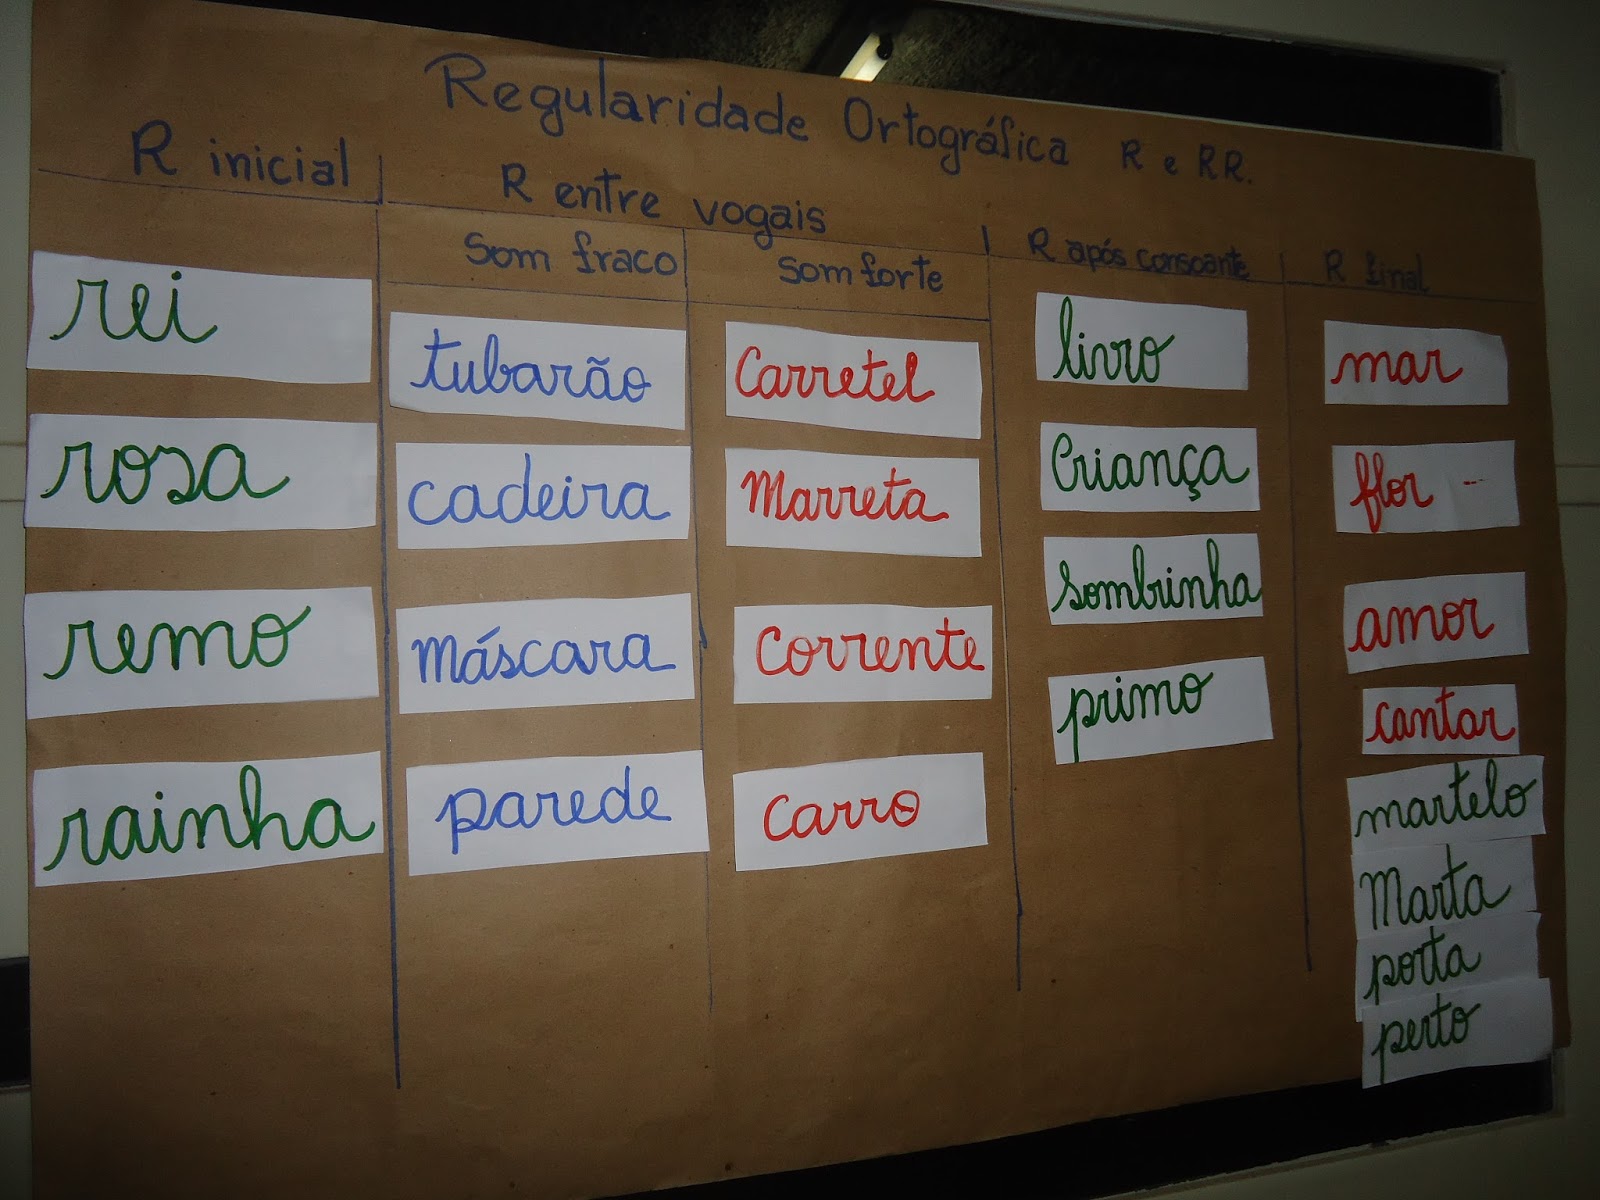 Regularidade Ortográfica R e RR.
R inicial
rei
rosa
remo
rainha
R entre vogais
Som fraco
tubarão
cadeira
máscara
parede
Som forte
Carretel
Marreta
Corrente
Carro
R após consoante
livro
Criança
sombrinha
primo
R final
mar
flor
amor
cantar
martelo
Marta
porta
perto